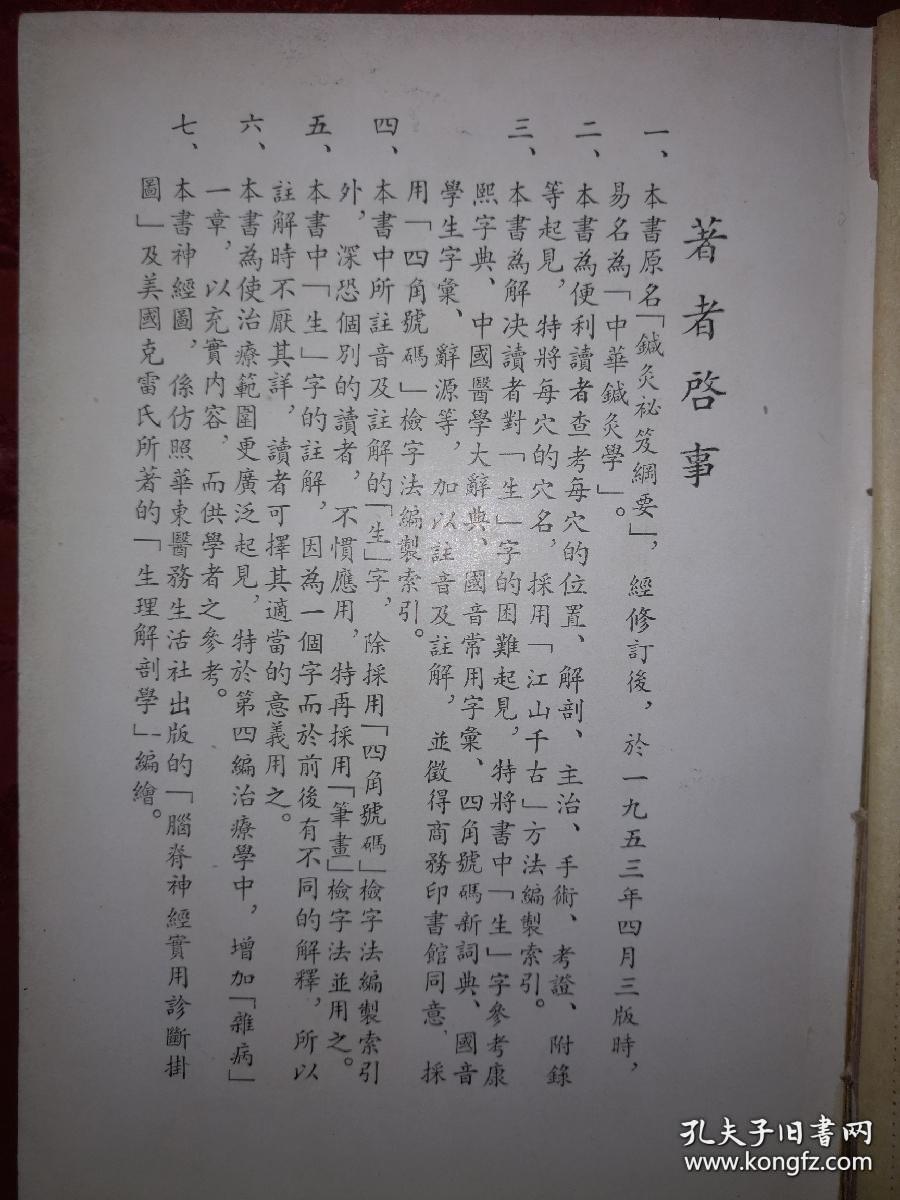 著者啓事
一、本書原名「鍼灸祕笈綱要」，經修訂後，於一九五三年四月三版時，
易名為「中華鍼灸學」。
二、本書為便利讀者查考每穴的位置、解剖、主治、手術、考證、附錄
等起見，特將每穴的穴名，採用「江山千古」方法編製索引。
三、本書為解決讀者對「生」字的困難起見，特將書中「生」字參考康
熙字典、中國醫學大辭典、國音常用字彙、四角號碼新詞典、國音
學生字彙、辭源等，加以註音及註解，並徵得商務印書館同意，採
用「四角號碼」檢字法編製索引。
四、本書中所註音及註解的「生」字，除採用「四角號碼」檢字法編製索引
外，深恐個別的讀者，不慣應用，特再採用「筆畫」檢字法並用之。
五、本書中「生」字的註解，因為一個字而於前後有不同的解釋，所以
註解時不厭其詳，讀者可擇其適當的意義用之。
六、本書為使治療範圍更廣泛起見，特於第四編治療學中，增加「雜病」
一章，以充實內容，而供學者之參考。
七、本書神經圖，係仿照華東醫務生活社出版的「腦脊神經實用診斷掛
圖」及美國克雷氏所著的「生理解剖學」編繪。
孔夫子旧书网
www.kongfz.com